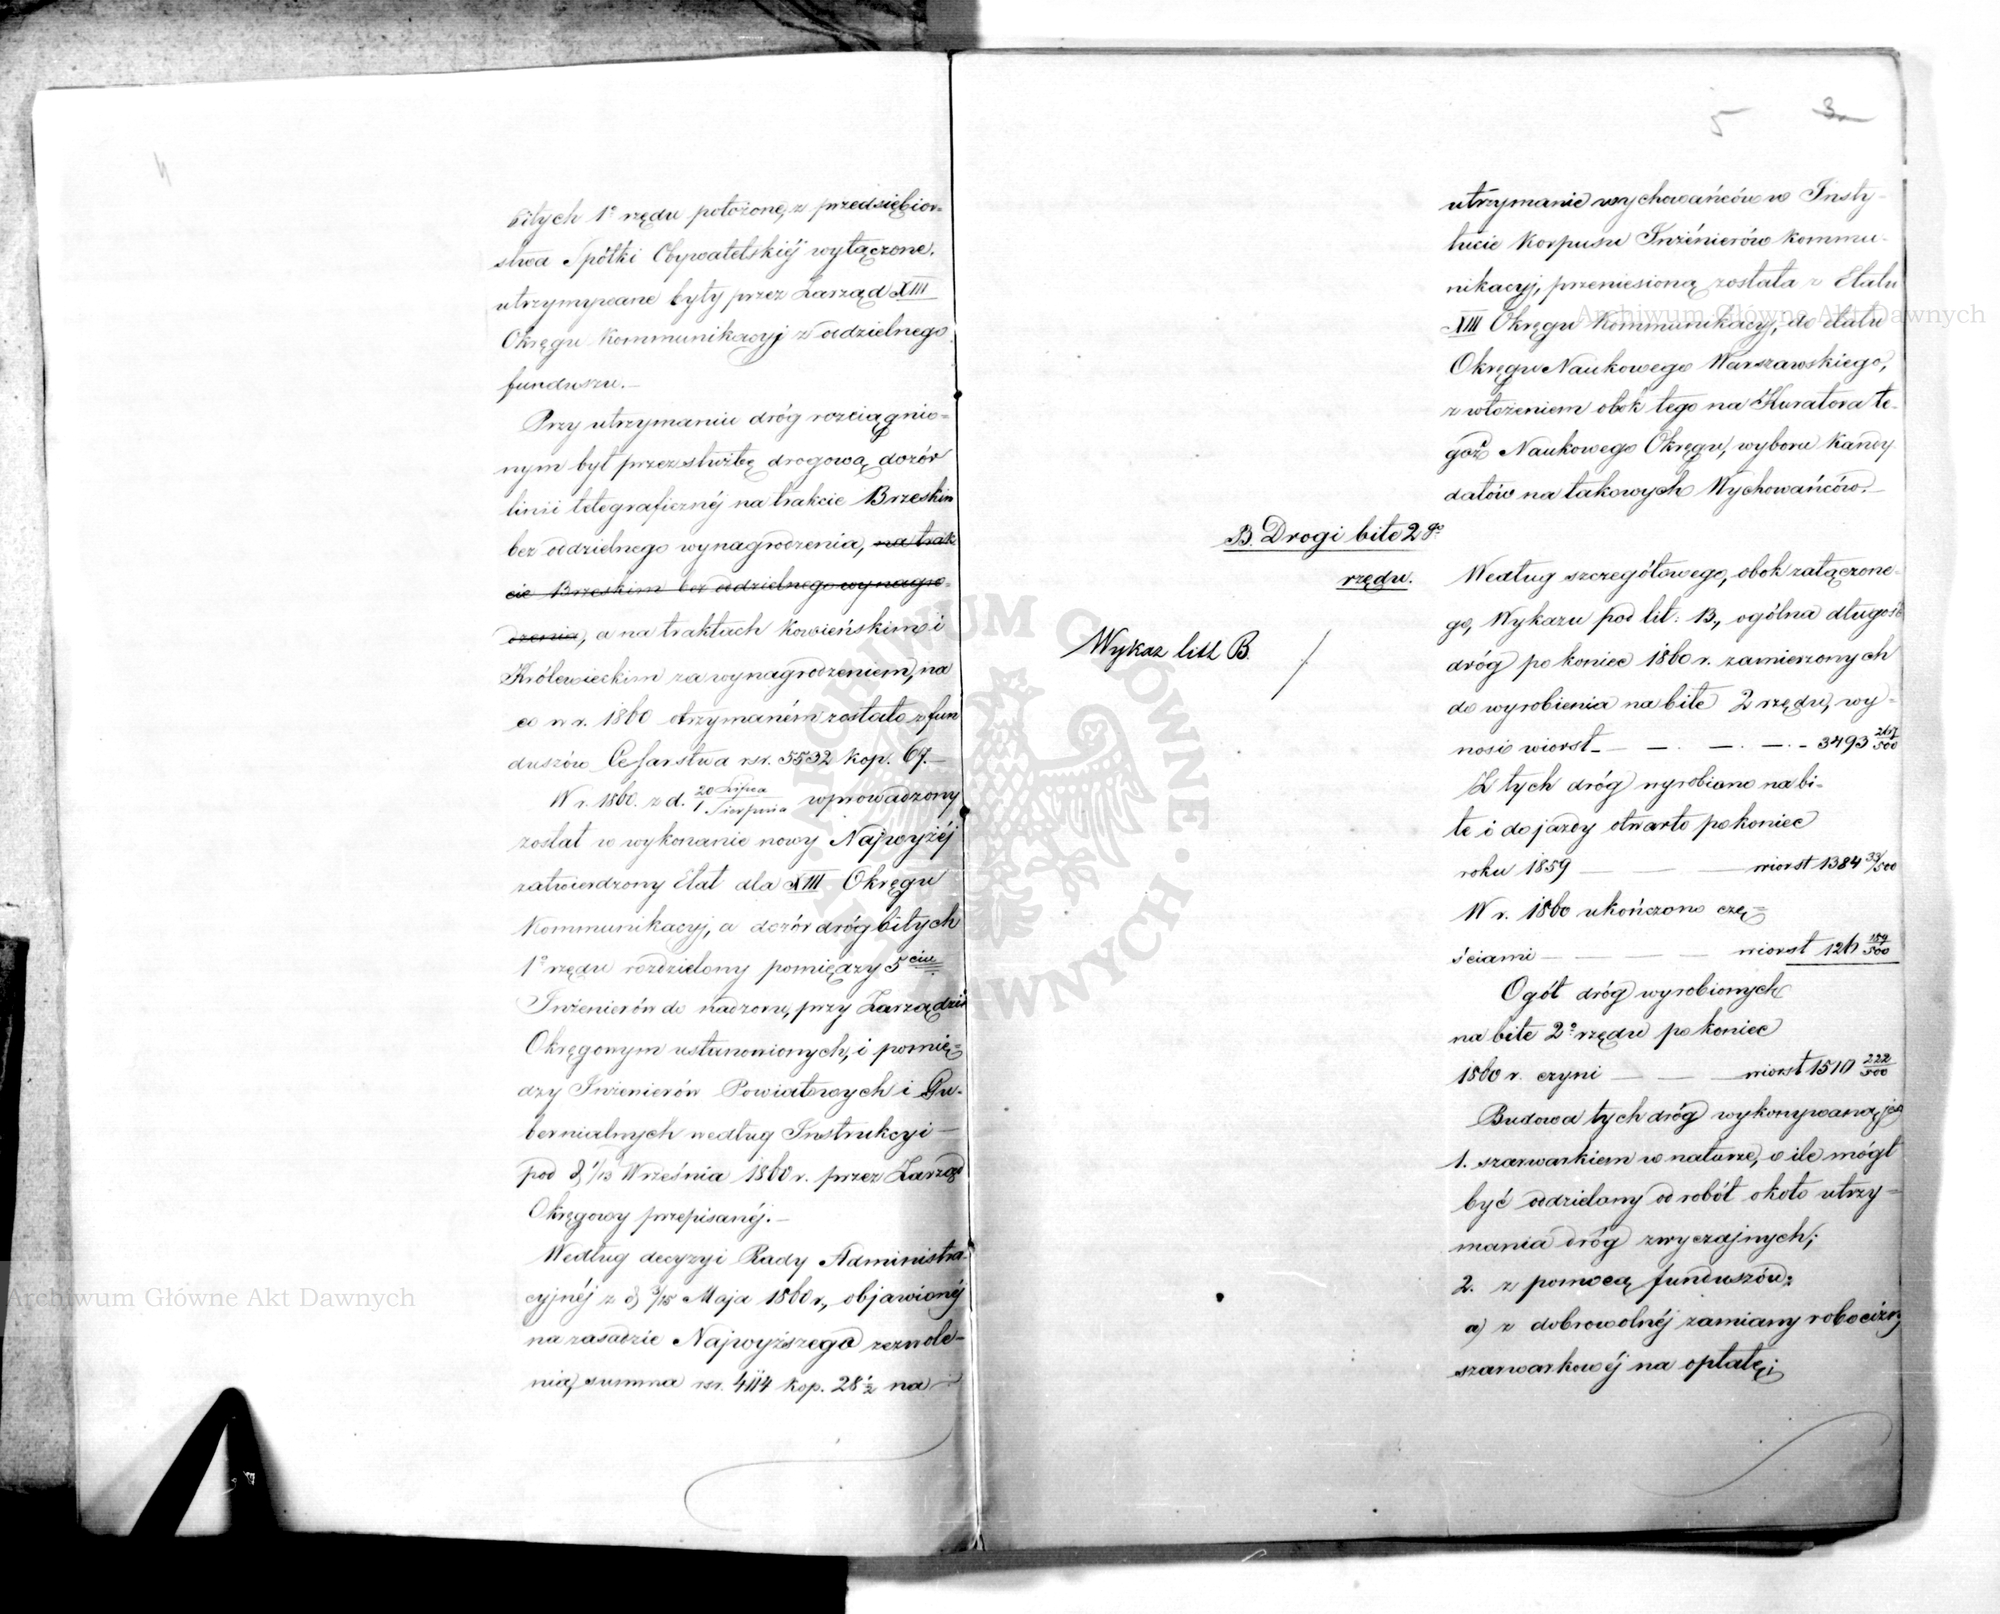 4
bitych 1º rzędu położone, z przedsiębior=
stwa Spółki Obywatelskiéj wyłączone,
utrzymywane były przez Zarząd XIII
Okręgu Kommunikacyj z oddzielnego
funduszu.—
Przy utrzymaniu dróg rozciągnio=
nym był przez służbę drogową dozór
linii telegraficznéj na trakcie Brzeskim
bez oddzielnego wynagrodzenia, na trak
cie Brzeskim bez oddzielnego wynagro=
dzenia, a na traktach Kowieńskim i
Królewieckim za wynagrodzeniem, na
co w r. 1860 otrzymaném zostało z fun
duszów Cesarstwa rsr. 5532 kop. 67.—
W r. 1860. z d. 20 Lipca / 1 Sierpnia wprowadzony
został w wykonanie nowy Najwyżéj
zatwierdzony Etat dla XIII Okręgu
Kommunikacyj, a dozór dróg bitych
1º rzędu rozdzielony pomiędzy 5 ciu
Inżenierów do nadzoru, przy Zarządzie
Okręgowym ustanowionych, i pomię=
dzy Inżenierów Powiatowych i Gu-
bernialnych według Instrukcyi—
pod d. 1/13 Września 1860 r. przez Zarząd
Okręgowy przepisanéj.—
Według decyzyi Rady Administra-
cyjnéj z d. 3/15 Maja 1860 r., objawionéj
na zasadzie Najwyższego zezwole-
nia, summa rsr. 4114 kop. 28 1/2 na
5 3
utrzymanie wychowańców w Insty-
tucie Korpusu Inżenierów Kommu-
nikacyj, przeniesioną została z Etatu
XIII Okręgu Kommunikacyj, do etatu
Okręgu Naukowego Warszawskiego,
z włożeniem obok tego na Kuratora te-
goż Naukowego Okręgu, wyboru Kandy
datów na takowych Wychowańców.—
B. Drogi bite 2 go
rzędu.
Według szczegółowego, obok załączone-
go, Wykazu pod lit: B., ogólna długość
Wykaz litt B.
dróg po koniec 1860 r. zamierzonych
do wyrobienia na bite 2 rzędu, wy=
nosi wiorst — — — — 3493 267/500
Z tych dróg wyrobiono na bi-
te i do jazdy otwarto po koniec
roku 1859 — — — wiorst 1384 33/500
W r. 1860 ukończono czę=
ściami — — — wiorst 126 189/500
Ogół dróg wyrobionych
na bite 2º rzędu po koniec
1860 r. czyni — — wiorst 1510 222/500
Budowa tych dróg wykonywaną jest
1. szarwarkiem w naturze, o ile mógł
być oddzielany od robót około utrzy=
mania dróg zwyczajnych;
2. z pomocą funduszów:
a) z dobrowolnéj zamiany robocizny
szarwarkowéj na opłatę;
Archiwum Główne Akt Dawnych
Archiwum Główne Akt Dawnych
ARCHIWUM GŁÓWNE AKT DAWNYCH